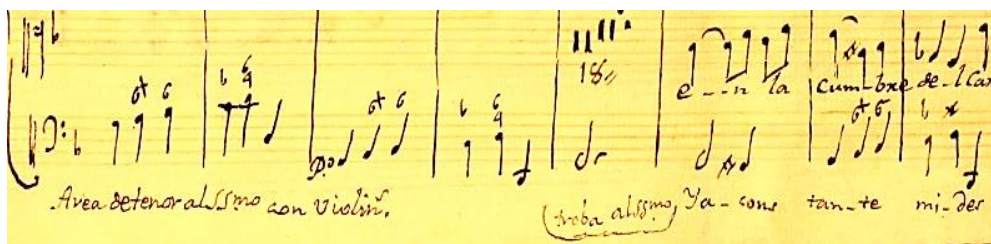 18
e - - n la cum - bre de - l Car
Area de tenor al SSmo con Violin.
troba al SSmo, Ya - cons tan - te mi - des